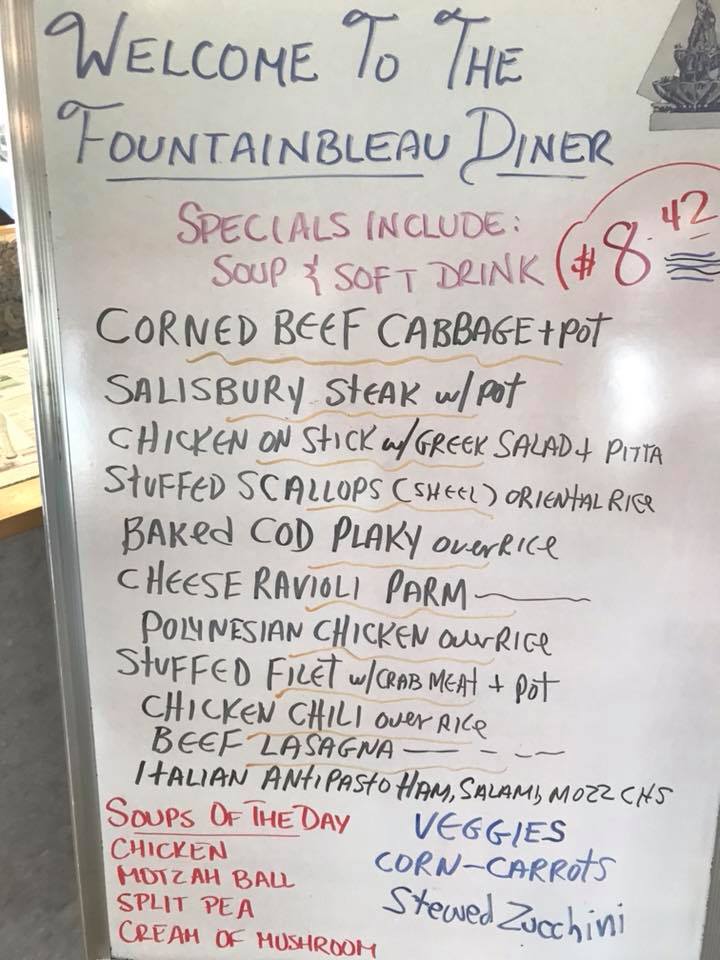 WELCOME TO THE
FOUNTAINBLEAU DINER
SPECIALS INCLUDE:
SOUP & SOFT DRINK ($8.42
CORNED BEEF CABBAGE + POT
SALISBURY STEAK w/ POT
CHICKEN ON STICK w/ GREEK SALAD + PITTA
STUFFED SCALLOPS (SHELL) ORIENTAL RICE
BAKED COD PLAKY over RICE
CHEESE RAVIOLI PARM
POLYNESIAN CHICKEN over RICE
STUFFED FILET w/ CRAB MEAT + POT
CHICKEN CHILI over RICE
BEEF LASAGNA
ITALIAN ANTIPASTO HAM, SALAMI, MOZZ CHS
SOUPS OF THE DAY
CHICKEN
MOTZAH BALL
SPLIT PEA
CREAM OF MUSHROOM
VEGGIES
CORN-CARROTS
Stewed Zucchini